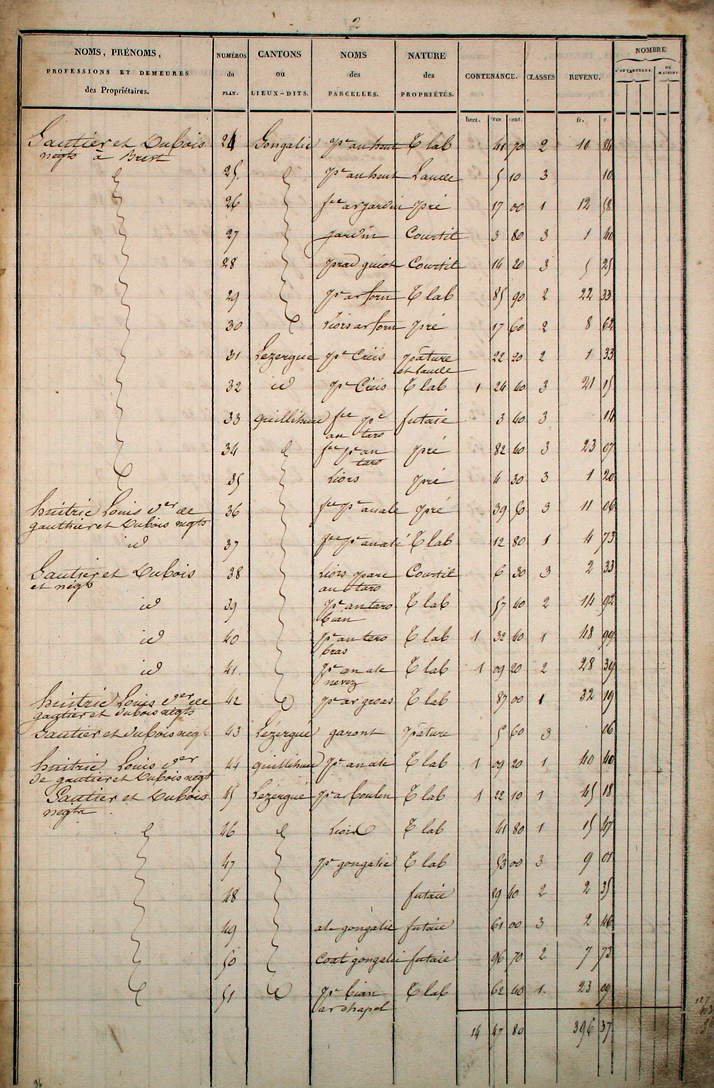 2
NOMS, PRÉNOMS, PROFESSIONS ET DEMEURES des Propriétaires. NUMÉROS du PLAN. CANTONS ou LIEUX-DITS. NOMS des PARCELLES. NATURE des PROPRIÉTÉS. CONTENANCE. CLASSES REVENU. NOMBRE
hect. ares cent. fr. c
Gautier et Dubois 24 Gongalic pr an huit T lab 41 70 2 10 84
negts à Brest
25 pr an huit Lande 5 10 3 10
26 fce ar jardin pré 17 00 1 12 58
27 jardin Courtil 3 80 3 1 40
28 prad guiot Courtil 14 20 3 5 25
29 pr ar forn T lab 85 90 2 22 33
30 Liors ar forn pré 17 60 2 8 62
31 Lezergué pr Creis pâture 22 20 2 1 33
et lande
32 id pr Creis T lab 1 24 40 3 21 15
33 quillihuec fce pr futaie 3 60 3 14
an taro
34 fce pr an pré 82 40 3 23 07
taro
35 Liors pré 4 30 3 1 20
huitric Louis fer de 36 fce pr anale pré 39 50 3 11 06
gauthier et Dubois negts
id 37 fce pr analé T lab 12 80 1 4 73
Gautier et Dubois 38 Liors parc Courtil 6 30 3 2 33
et negts
an taro
id 39 pr an taro T lab 57 40 2 14 92
bian
id 40 pr an taro T lab 1 32 40 1 48 99
bras
id 41 pr an ale T lab 1 09 20 2 28 39
nevez
huitric Louis fer de 42 pr ar groas T lab 87 00 1 32 19
gautier et dubois negts
Gautier et dubois negt 43 Lézergué garont pâture 5 60 3 06
huitric Louis fer 44 quillihuec pr an alé T lab 1 09 20 1 40 40
de gautier et Dubois negt
Gautier et Dubois 45 Lezergué pr ar boulou T lab 1 22 10 1 45 18
negts
46 Liors T lab 41 80 1 15 47
47 pr gongalic T lab 53 00 3 9 01
48 futaie 89 40 2 2 35
49 ale gongalic futaie 61 00 3 2 46
50 coat gongalic futaie 96 70 2 7 73
51 pr bian T lab 62 40 1 23 09
ar chapel
14 47 80 396 37